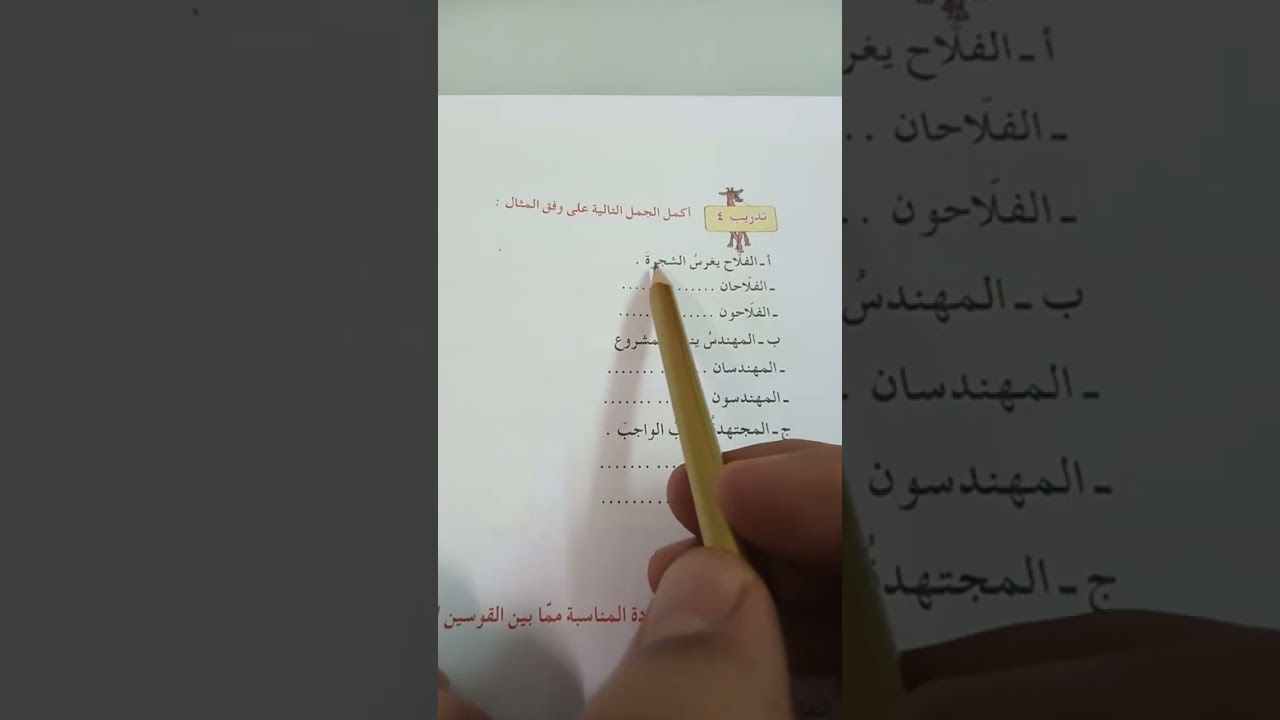 تدريب ٤ أكمل الجمل التالية على وفق المثال :
أ ـ الفلّاح يغرسُ الشجرةَ .
ـ الفلّاحان . . . . . . . . . . . .
ـ الفلّاحون . . . . . . . . . . . .
ب ـ المهندسُ المشروع
ـ المهندسان . . . . . . . . . . . .
ـ المهندسون . . . . . . . . . . . .
ج ـ المجتهدةُ الواجبَ .
. . . . . . . . . .
. . . . . . . . . .
المناسبة ممّا بين القوسين